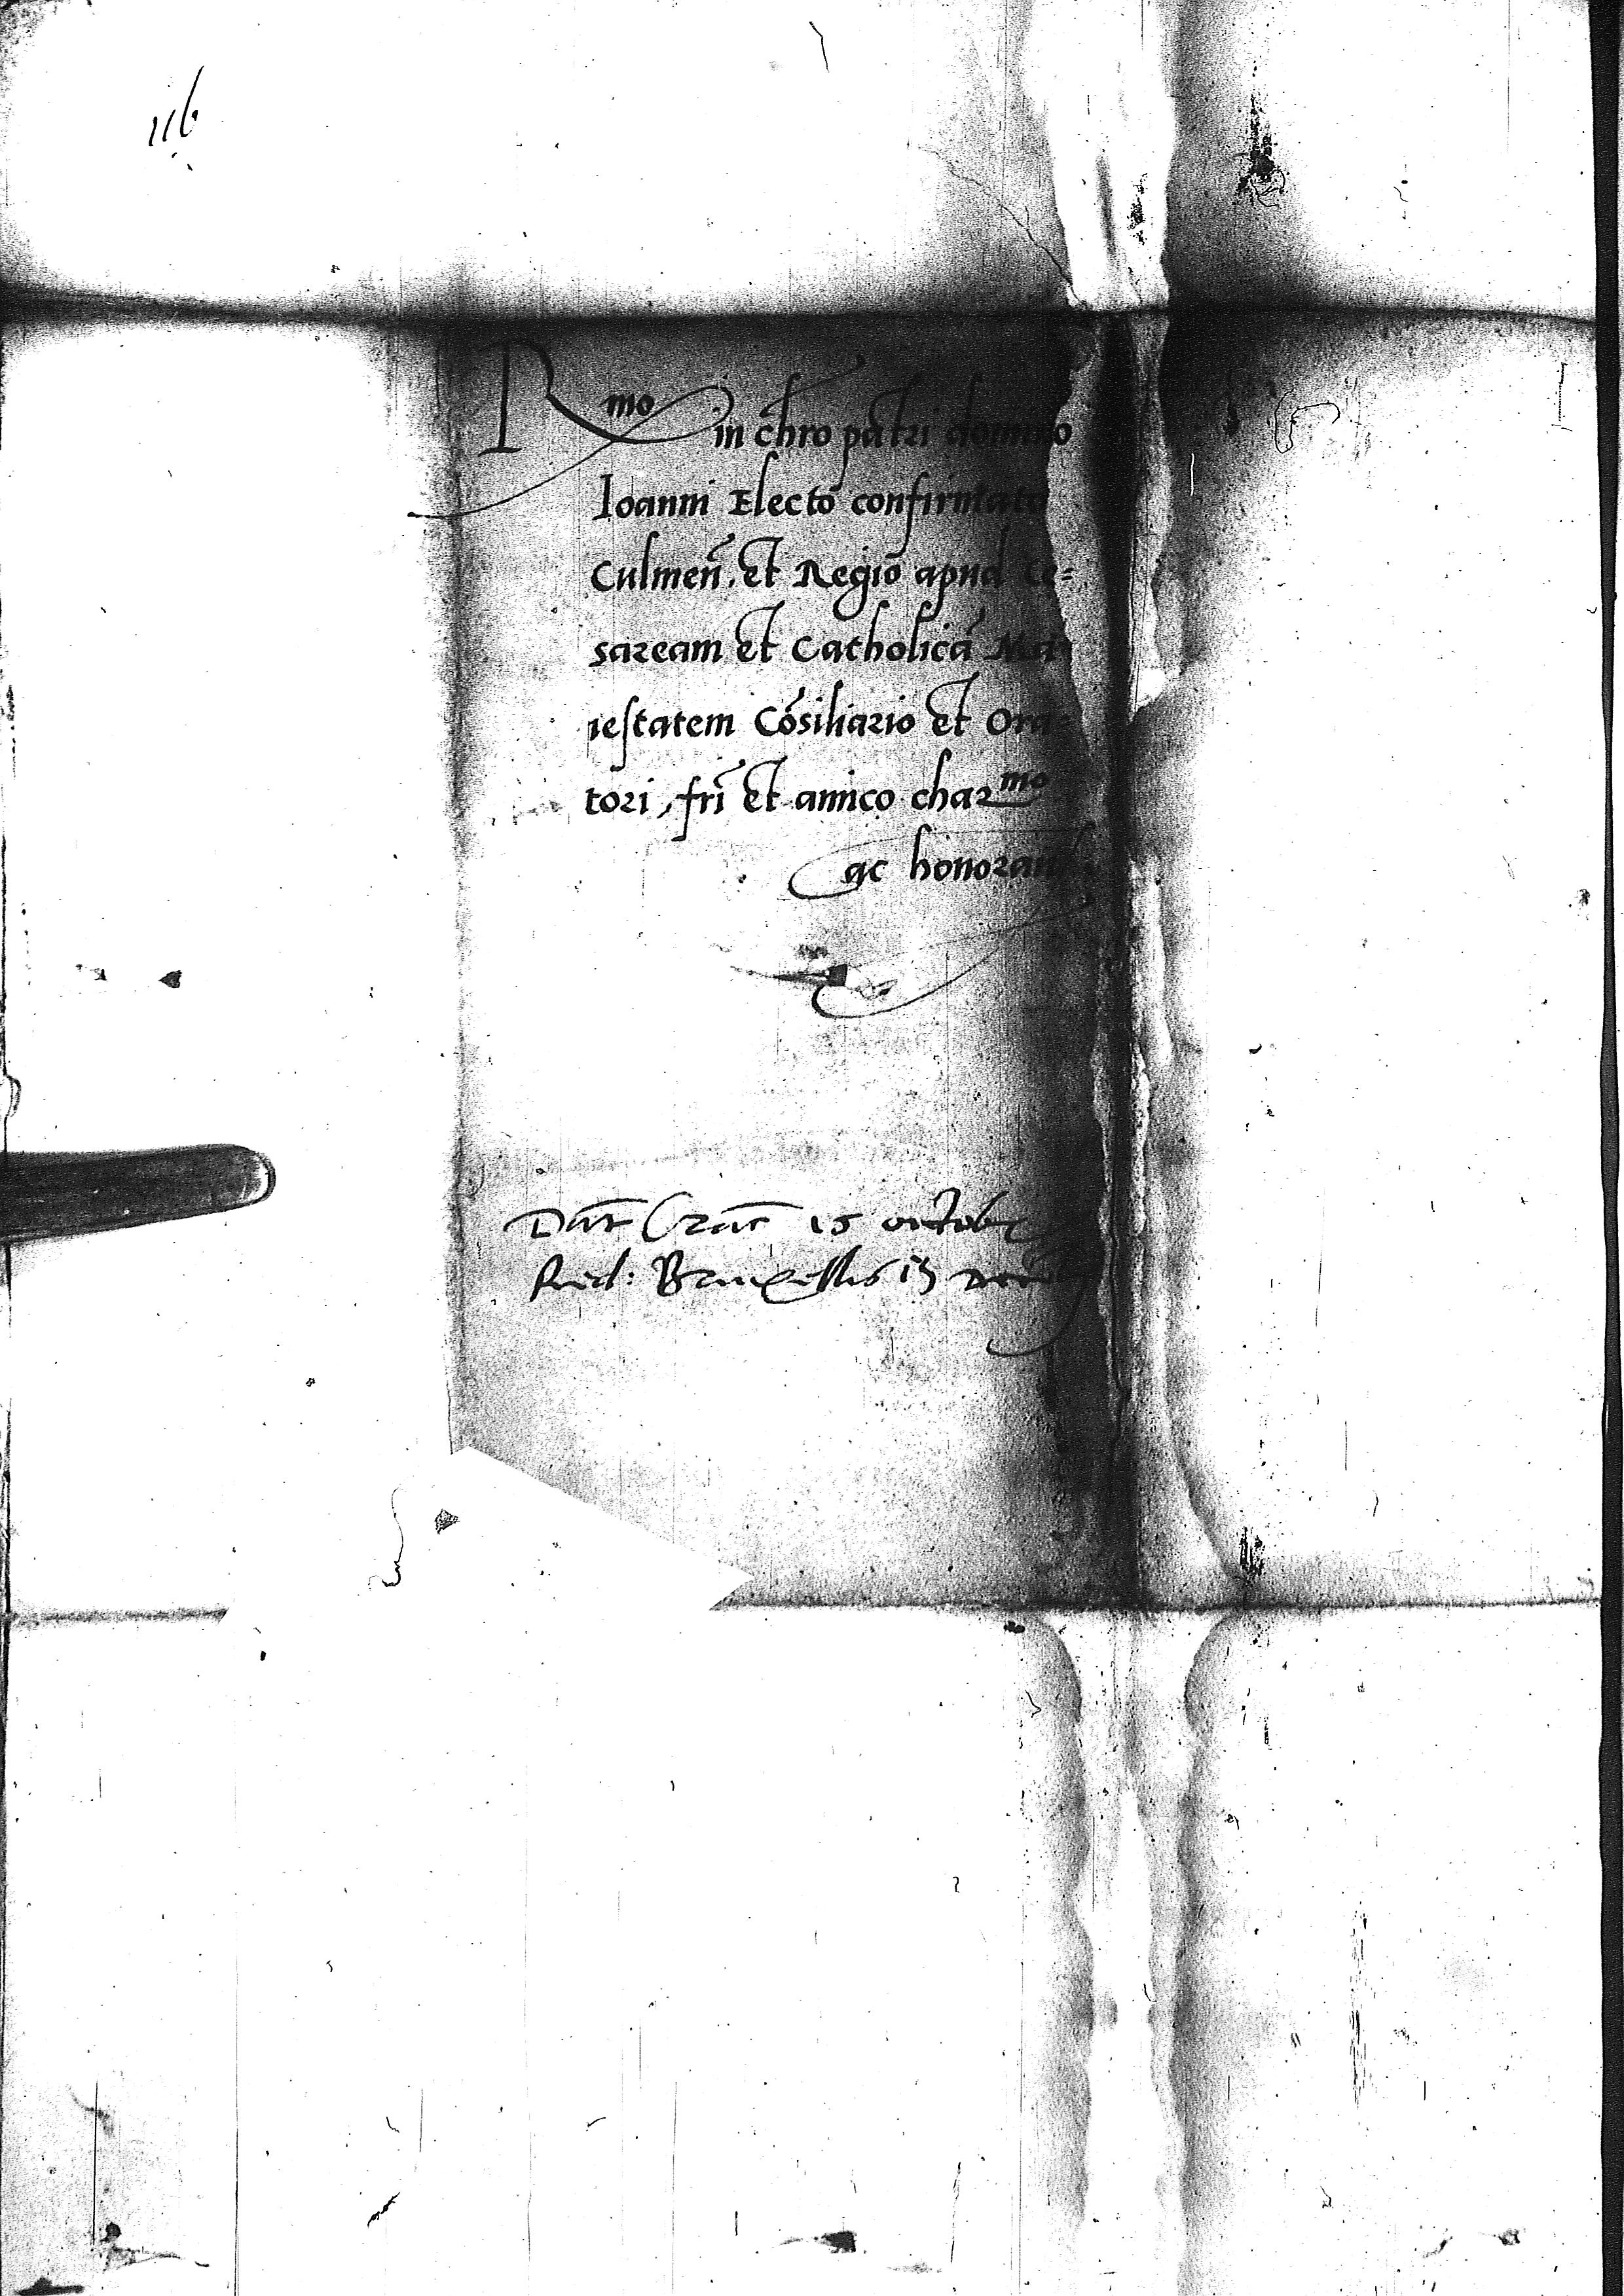 116
R mo in chro patri domino
Ioanni Electo confirmato
Culmen̄. et Regio apud Ce=
saream et Catholicā Ma=
iestatem Cōsiliario et Ora=
tori, fri et amico char mo
ac honoran
Dat Crac 15 octobr
Red: Bruxellis 13